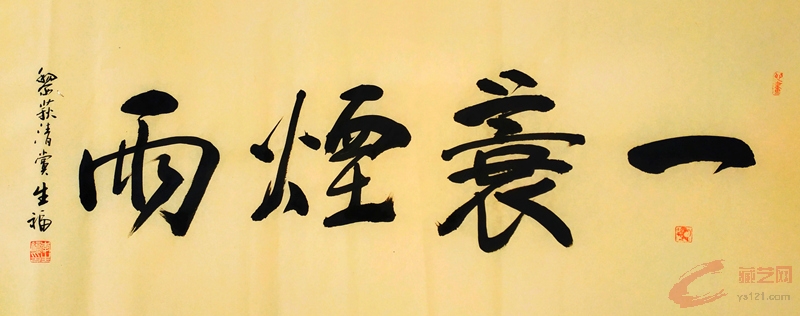 一蓑煙雨
黎清賞生福
藏艺网
ys121.com